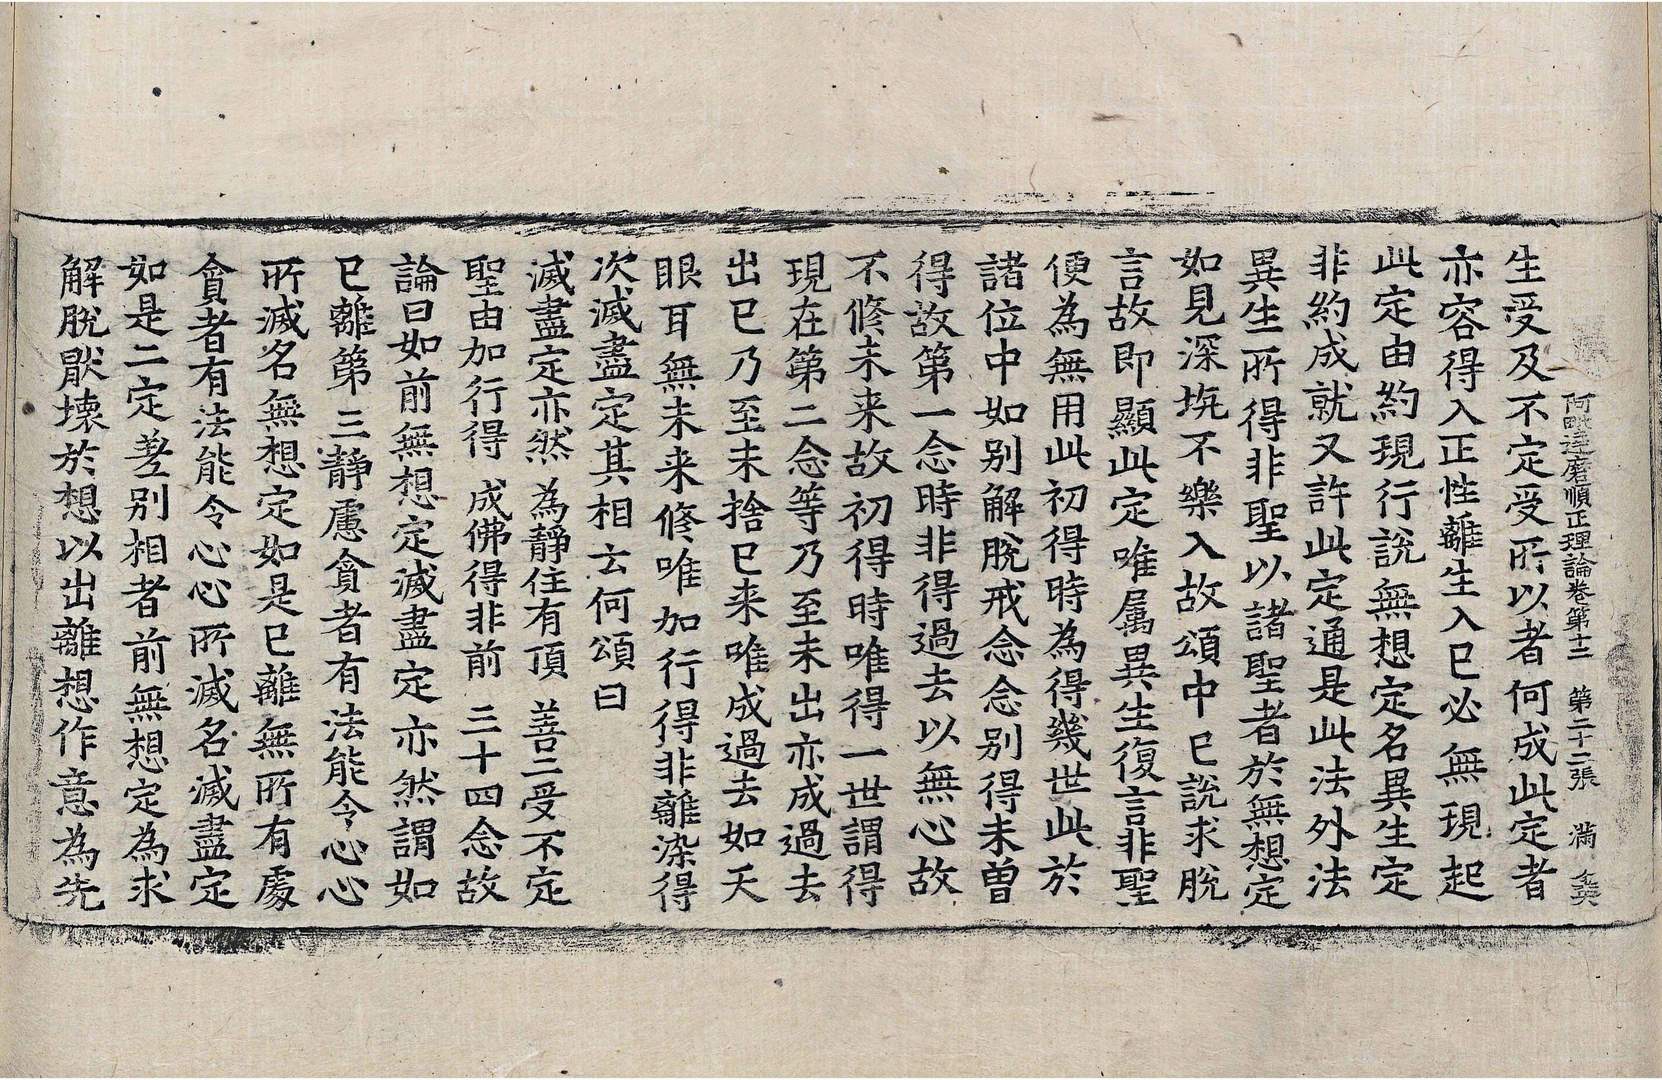 阿毗達磨順正理論卷第十二 第二十二張 滿
生受及不定受所以者何成此定者
亦容得入正性離生入已必無現起
此定由約現行說無想定名異生定
非約成就又許此定通是此法外法
異生所得非聖以諸聖者於無想定
如見深坑不樂入故頌中已說求脫
言故即顯此定唯属異生復言非聖
便為無用此初得時為得幾世此於
諸位中如别解脫戒念念别得未曽
得故第一念時非得過去以無心故
不修未来故初得時唯得一世謂得
現在第二念等乃至未出亦成過去
出已乃至未捨已来唯成過去如天
眼耳無未来修唯加行得非離染得
次滅盡定其相云何頌曰
滅盡定亦然 為靜住有頂 善二受不定
聖由加行得 成佛得非前 三十四念故
論曰如前無想定滅盡定亦然謂如
已離第三靜慮貪者有法能令心心
所滅名無想定如是已離無所有處
貪者有法能令心心所滅名滅盡定
如是二定差别相者前無想定為求
解脫猒壞於想以出離想作意為先